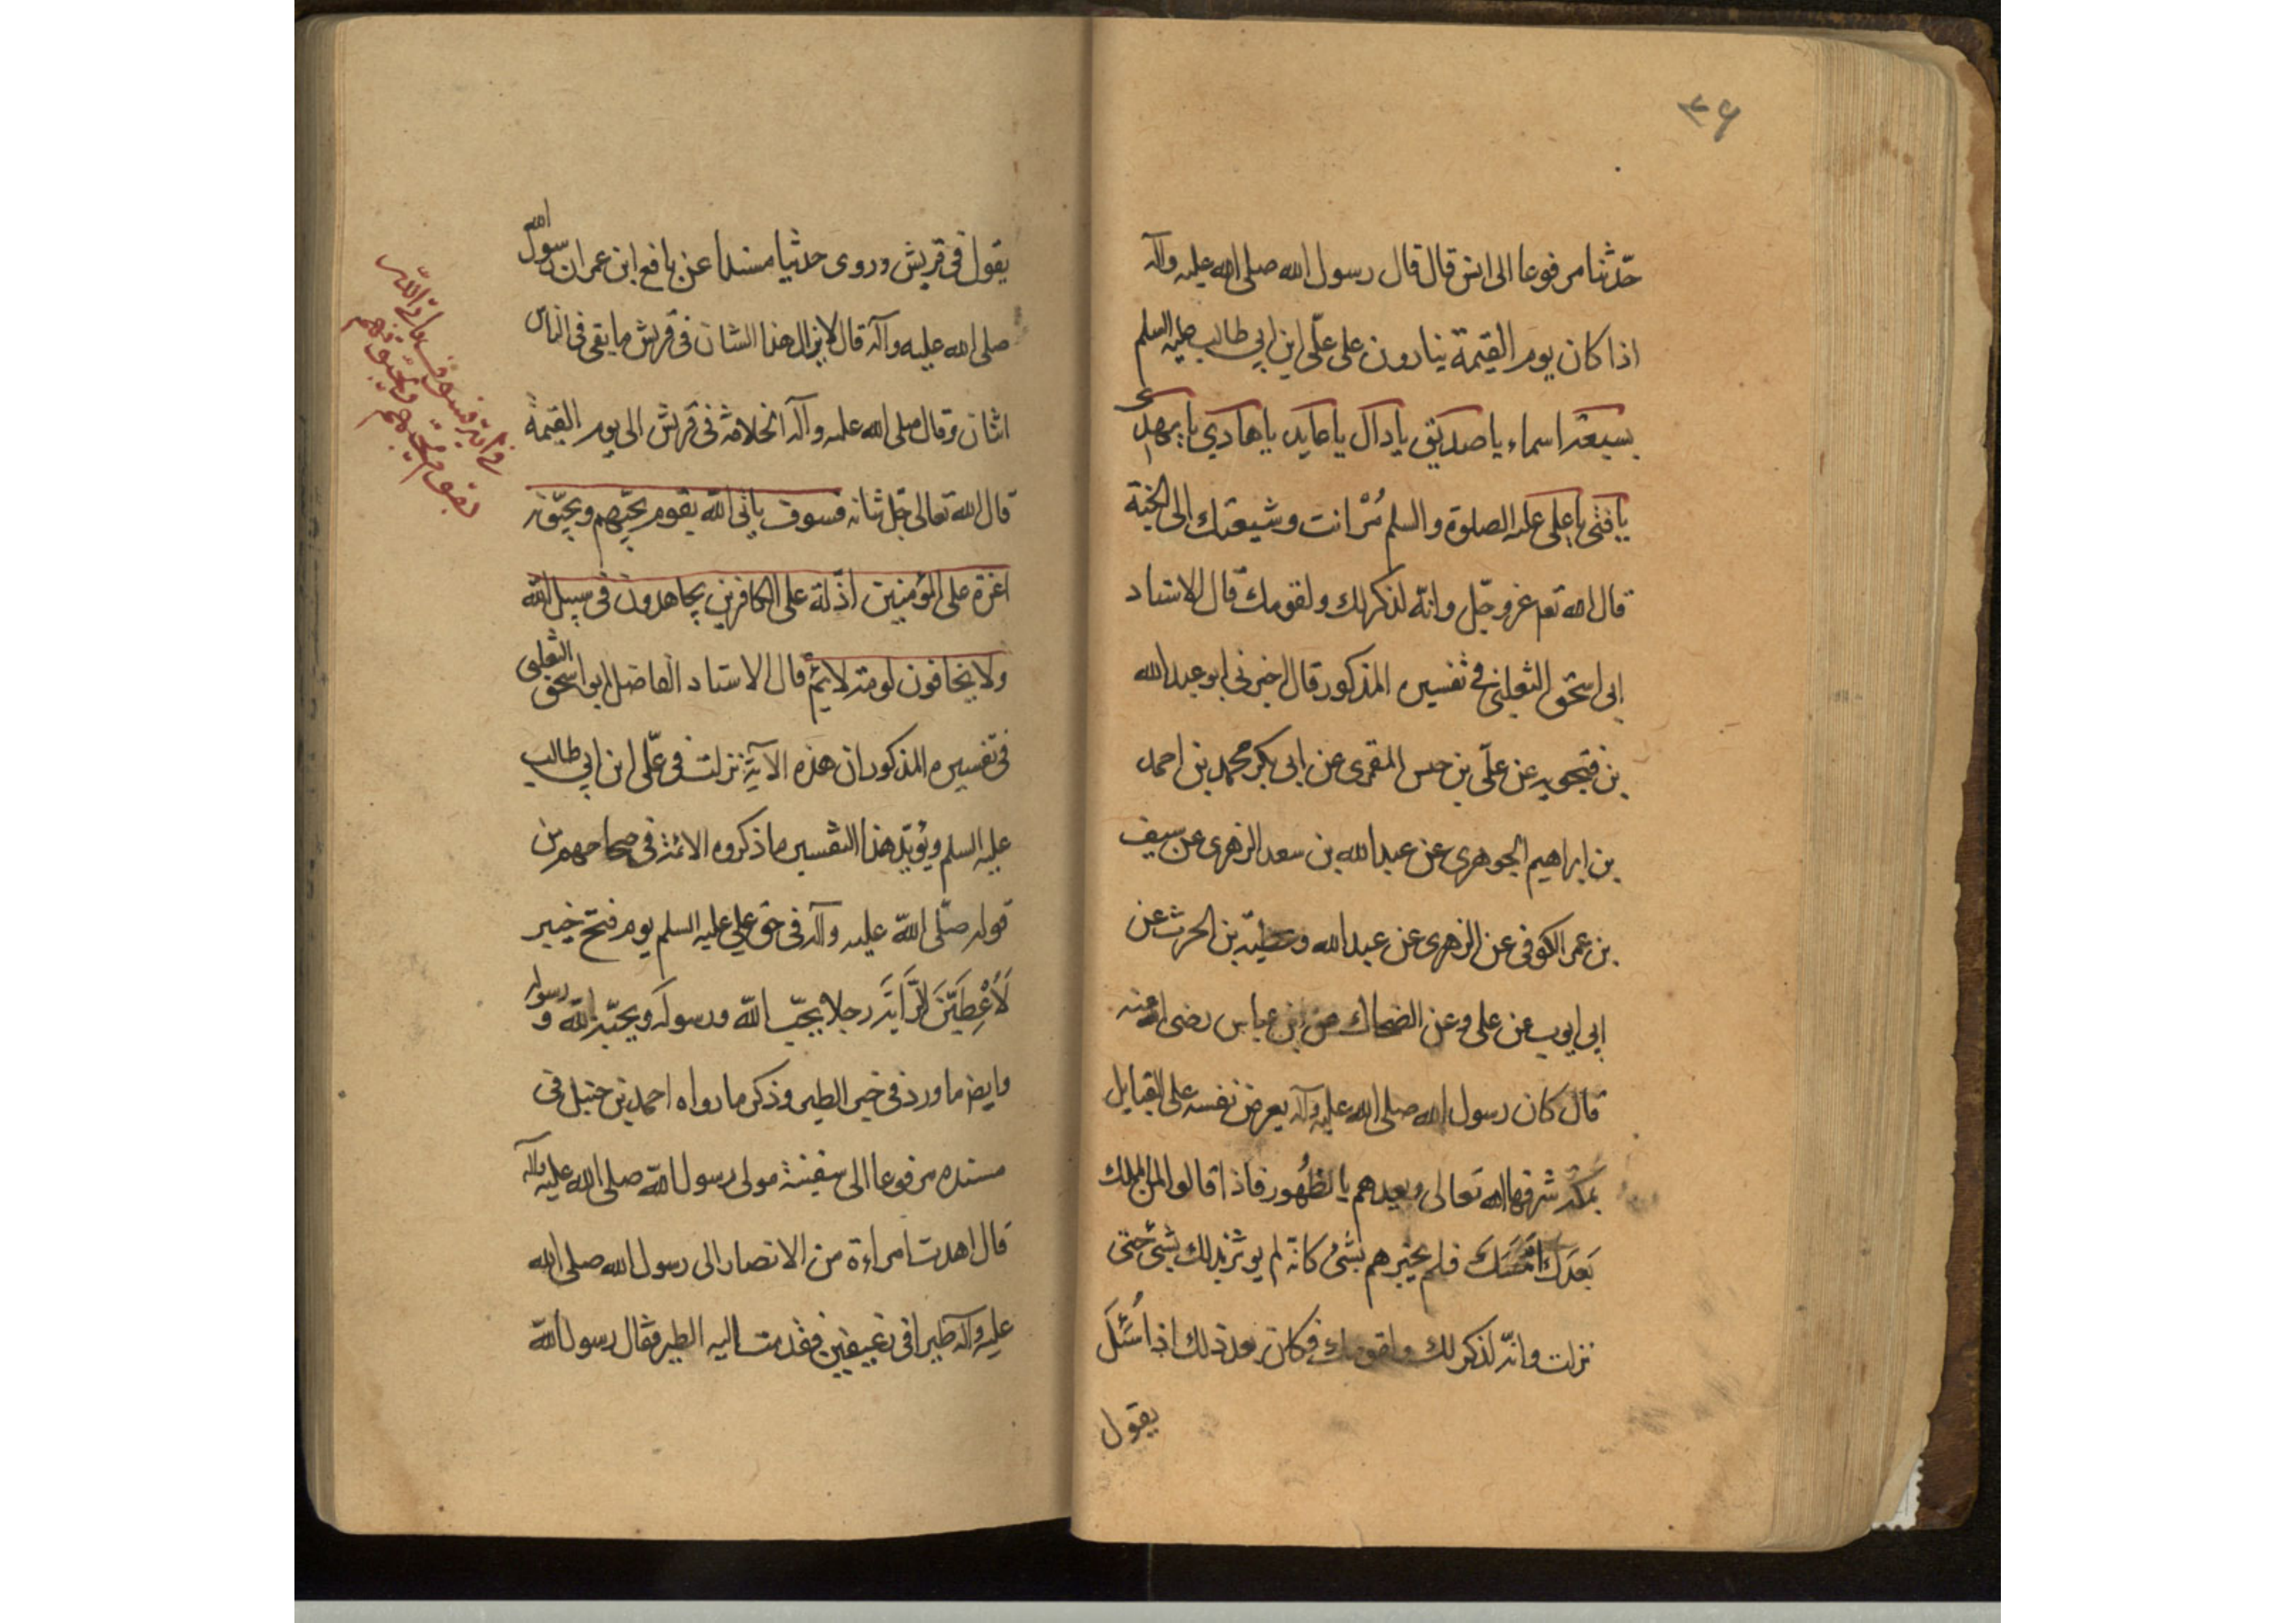 ۳۶
حدّثنا مرفوعا الى انس قال قال رسول الله صلى الله عليه وآله
اذا كان يوم القيمة ينادون على علّى ابن ابي طالب عليه السلم
بسبعة اسماء يا صديق يا دال يا عابد يا هادي يا مهدى
يا فتى يا على عليه الصلوة والسلم مُرْ انت وشيعتك الى الجنة
قال الله تعم عزو جّل وانّه لذكر لك ولقومك قال الاستاد
ابى اسحق الثعلبى فى تفسيره المذكور قال اخبرنى ابو عبد الله
بن فتجويه عن علّى بن حس المقرى عن ابى بكر محمد بن احمد
بن ابراهيم الجوهرى عن عبد الله بن سعد الزهرى عن سيف
بن عمر الكوفى عن الزهرى عن عبد الله وعطيّه بن الحرث عن
ابى ايوب عن على وعن الضحاك عن ابن عباس رضى الله عنه
قال كان رسول الله صلى الله عليه وآله يعرض نفسه على القبايل
بمكه شرفها الله تعالى ويعدهم بالظُهور فاذا قالوا لمن الملك
بَعدَك امسَكَ فلم يخبرهم بشئ كانّه لم يوثر بذلك بشئ حتى
نزلت وانّه لذكر لك ولقومك فكان بعد ذلك اذا سُئلَ
يقول
يقول فى قريش وروى حدثيا مسندا عن نافع ابن عمر ان رسول الله
صلى الله عليه وآله قال لا يزال هذا الشان فى قريش ما بقى فى الناس
اثنان وقال صلى الله عليه وآله الخلافة فى قريش الى يوم القيمة
قال الله تعالى جّل ثنانه فسوف ياتى الله بقوم يحبّهم ويحبّونه
اعزة على المؤمنين اذّلة على الكافرين يجاهدون فى سبيل الله
ولا يخافون لومة لائمٍ قال الاستاد الفاضل ابو اسحق الثعلبى
فى تفسيره المذكور ان هذه الآية نزلت فى علّى ابن ابي طالب
عليه السلم ويؤيّد هذا التفسير ما ذكروه الائمة فى صحاحهم من
قوله صلّى الله عليه وآله فى حق علي عليه السلم يوم فتح خيبر
لَأُعْطِيَنَّ الرَّايَةَ رجلا يحبّ الله ورسوله ويحبّه الله ورسوله
وايضا ما ورد فى خبر الطير وذكر ما رواه احمد بن حنبل فى
مسنده مرفوعا الى سفينة مولى رسول الله صلى الله عليه وآله
قال اهدت امراءة من الانصار الى رسول الله صلى الله
عليه وآله طيرا فى رغيفين فقدمت اليه الطير فقال رسول الله
فى آية فسوف ياتى الله
بقوم يحبّهم ويحبّونهم